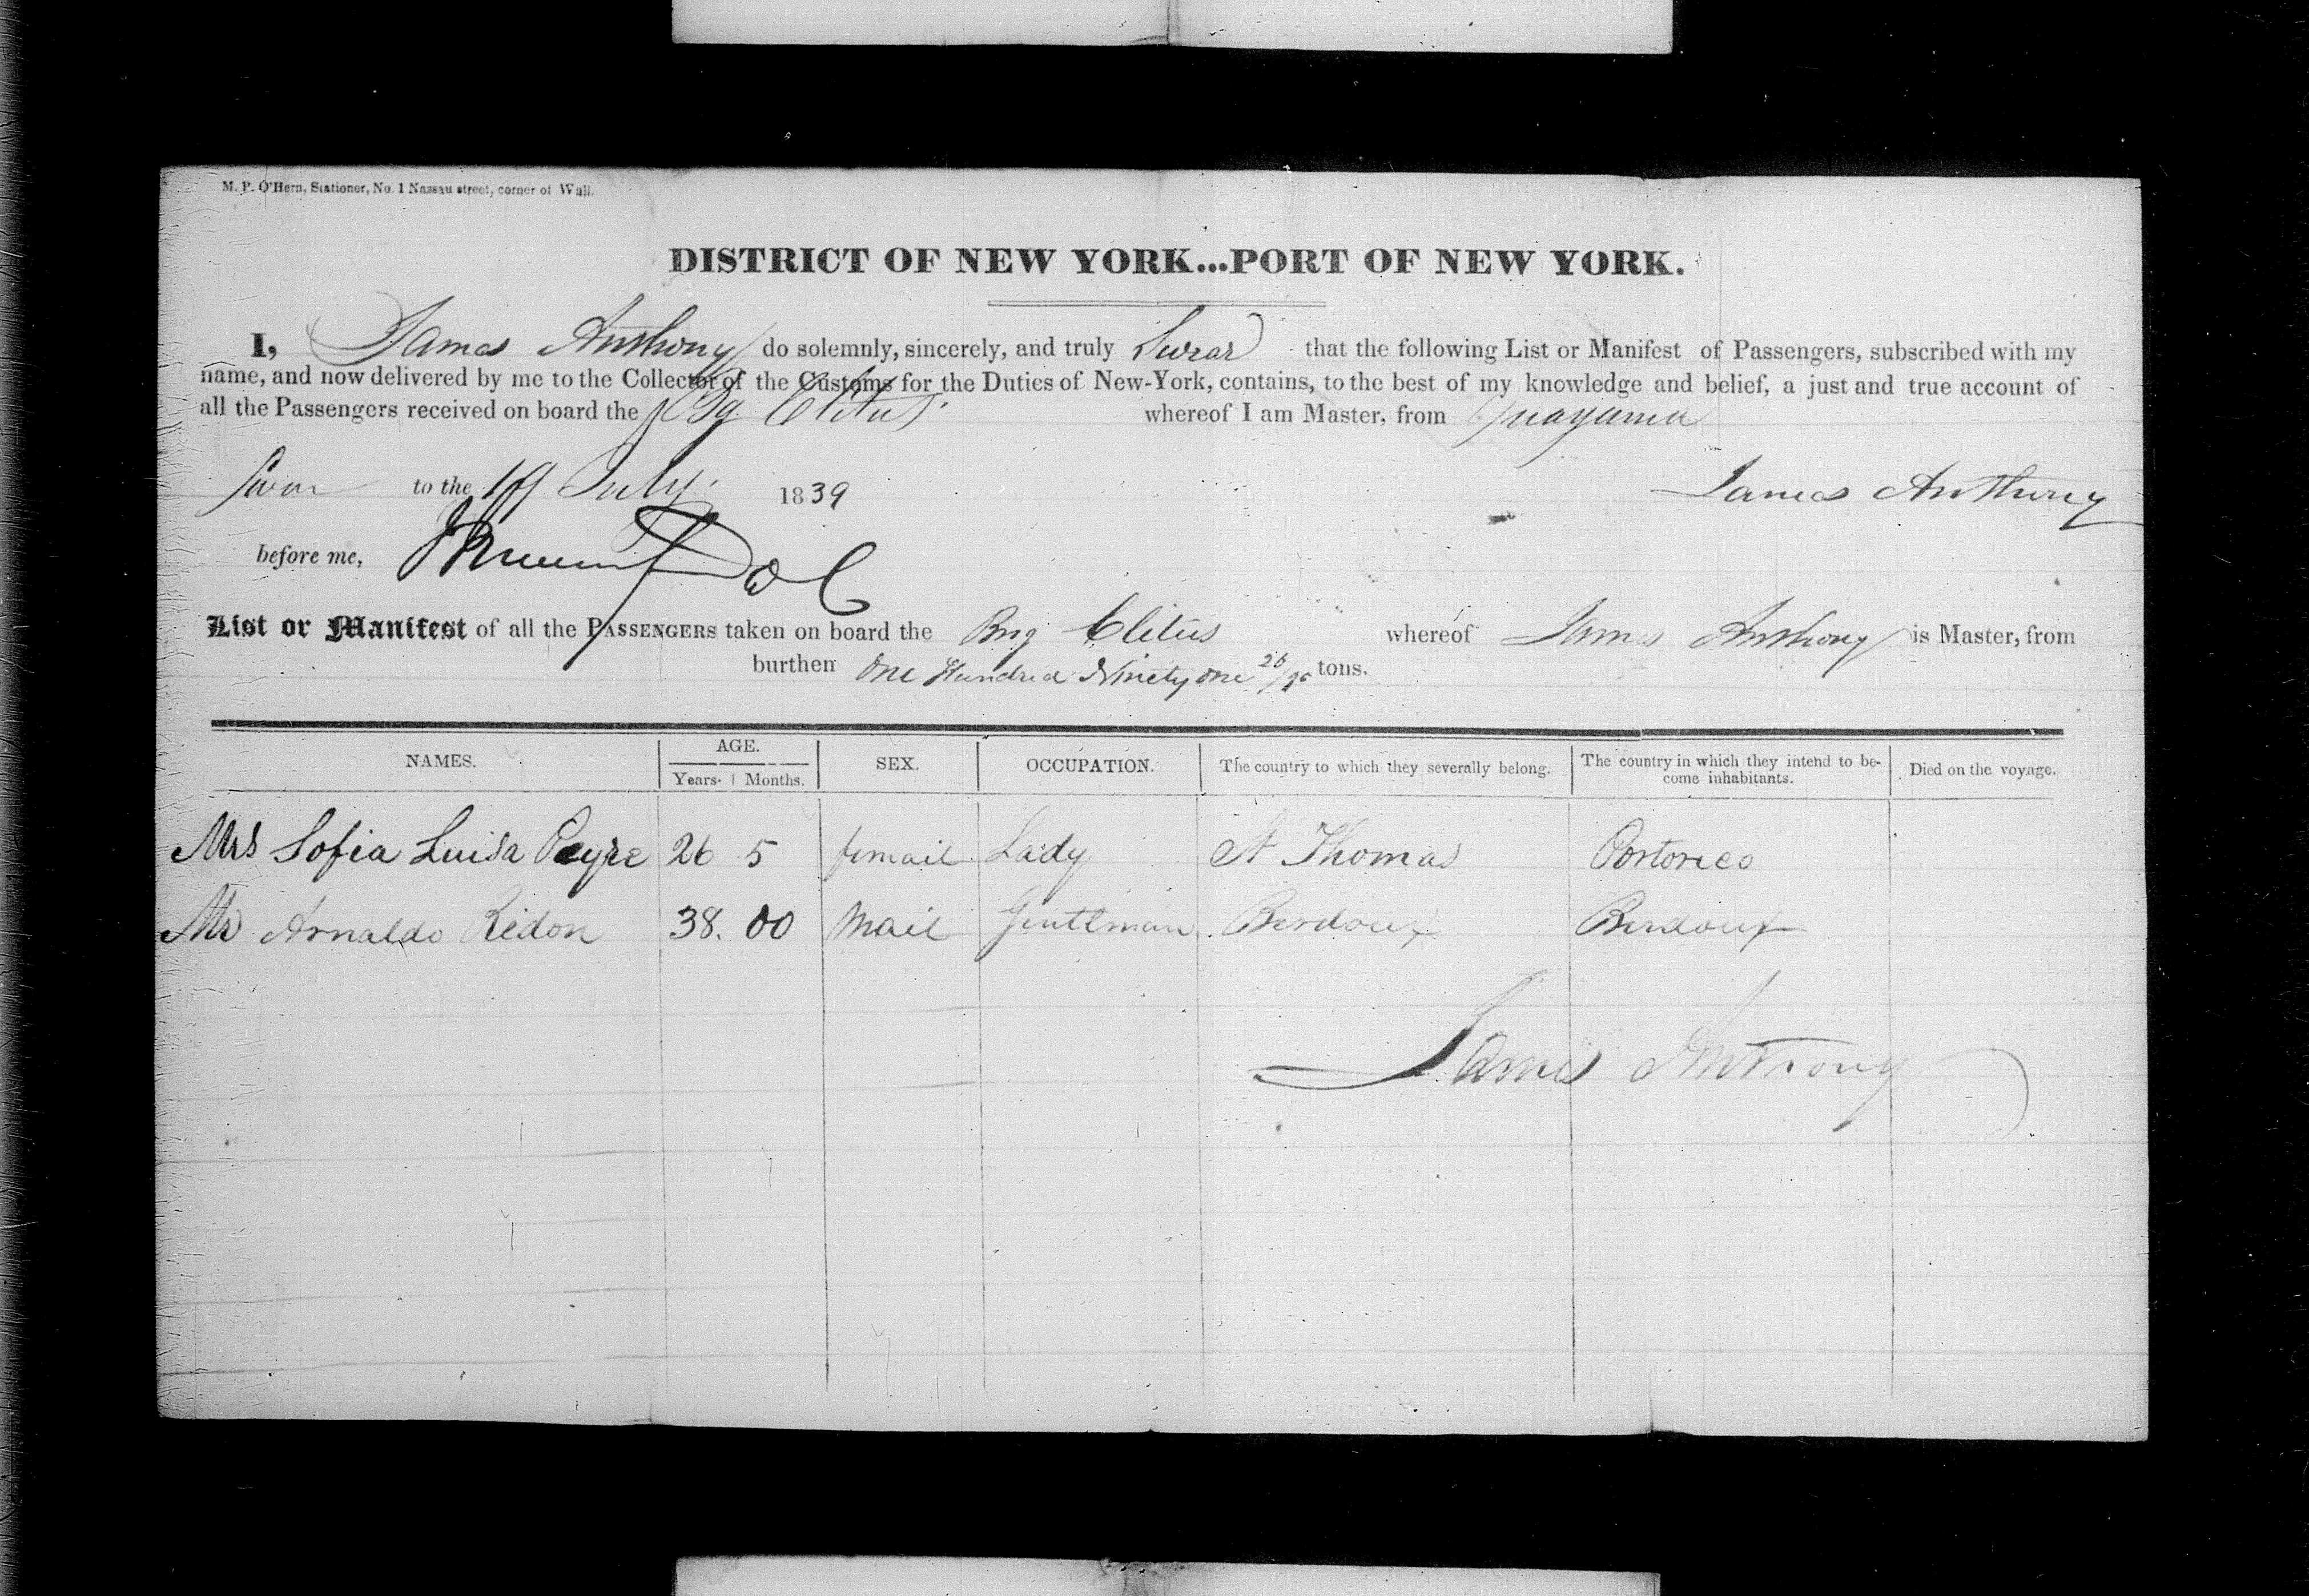 M. P. O'Hern, Stationer, No. 1 Nassau street, corner of Wall.
DISTRICT OF NEW YORK...PORT OF NEW YORK.
I, James Anthony do solemnly, sincerely, and truly Swear that the following List or Manifest of Passengers, subscribed with my
name, and now delivered by me to the Collector of the Customs for the Duties of New-York, contains, to the best of my knowledge and belief, a just and true account of
all the Passengers received on board the Bg Clitus whereof I am Master, from Guayama
Sworn to the July 1839 James Anthony
before me,
List or Manifest of all the PASSENGERS taken on board the Brig Clitus whereof James Anthony is Master, from
burthen One Hundred Ninety one 26/95 tons.
NAMES. AGE. SEX. OCCUPATION. The country to which they severally belong. The country in which they intend to be- Died on the voyage.
Years. Months. come inhabitants.
Mrs Sofia Luisa Peyre 26 5 femail Lady St Thomas Portorico
Mr Arnaldo Ridon 38. 00 Mail Gentlman Burdoux Burdoux
James Anthony